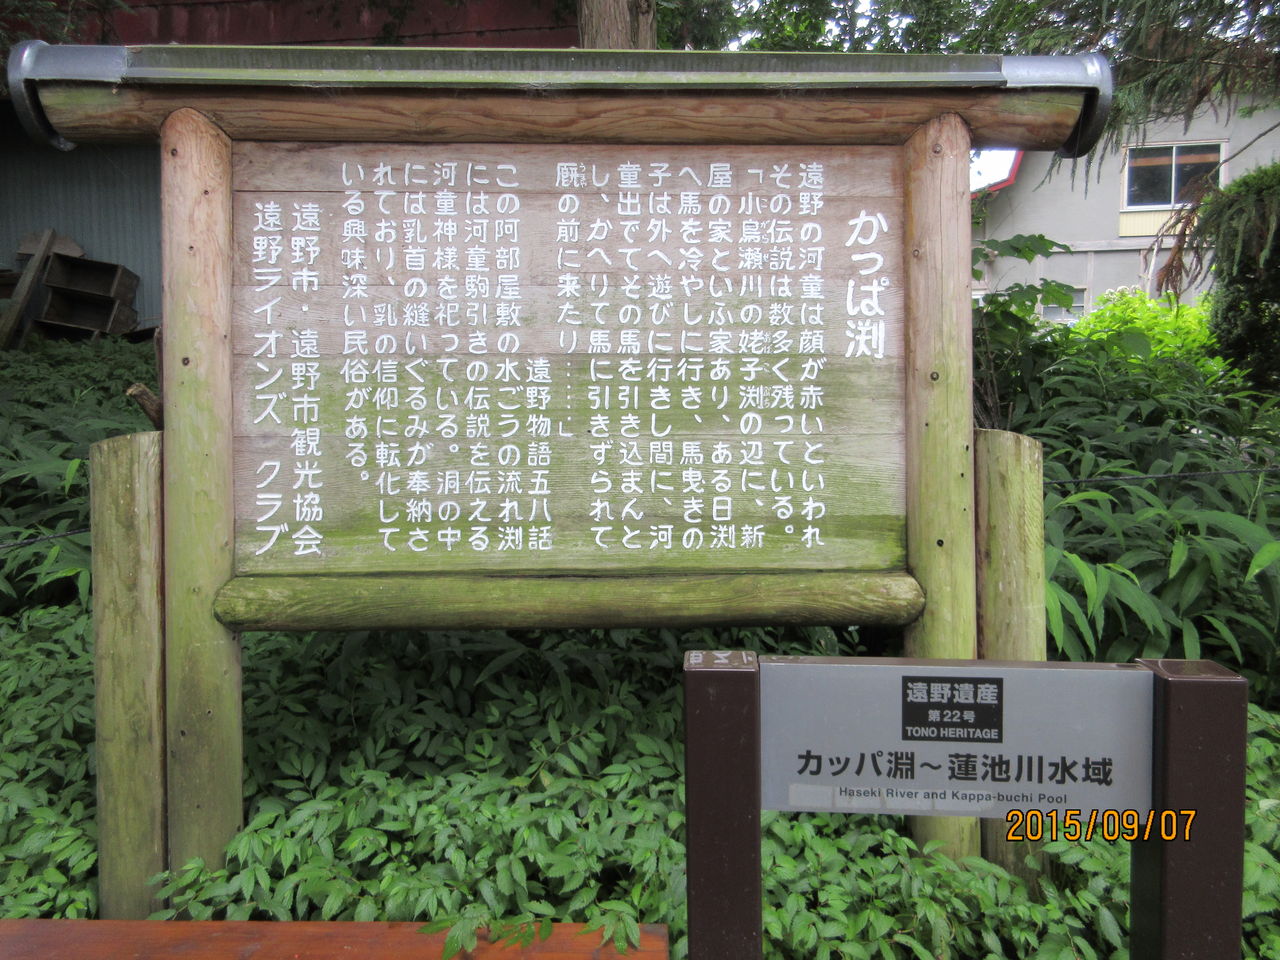 かっぱ渕
遠野の河童は顔が赤いといわれ
その伝説は数多く残っている。
「小烏瀬川の姥子渕の辺に、新
屋の家といふ家あり、ある日渕
へ馬を冷やしに行き、馬曳きの
子は外へ遊びに行きし間に、河
童出でてその馬を引き込まんと
し、かへりて馬に引きずられて
厩の前に来たり………」
遠野物語五八話
この阿部屋敷の水ごうの流れ渕
には河童駒引きの伝説を伝える
河童神様を祀っている。洞の中
には乳首の縫いぐるみが奉納さ
れており、乳の信仰に転化して
いる興味深い民俗がある。
遠野市・遠野市観光協会
遠野ライオンズ クラブ
遠野遺産
第22号
TONO HERITAGE
カッパ淵～蓮池川水域
Haseki River and Kappa-buchi Pool
2015/09/07